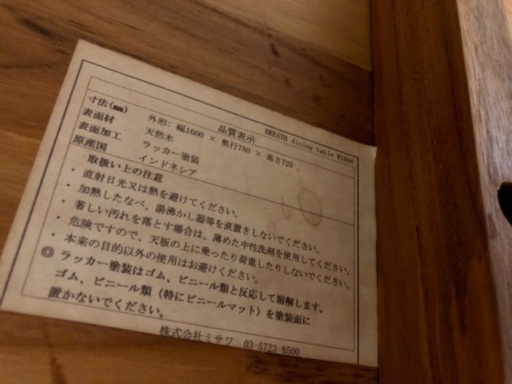 品質表示 BREATH dining table W1600
寸法(㎜) 外形: 幅1600 × 奥行780 × 高さ720
表面材 天然木
表面加工 ラッカー塗装
原産国 インドネシア
取扱い上の注意
・直射日光又は熱を避けてください。
・加熱したなべ、湯沸かし器等を直置きしないでください。
・著しい汚れを落とす場合は、薄めた中性洗剤を使用してください。
・危険ですので、天板の上に乗ったり荷重したりしないでください。
・本来の目的以外の使用はお避けください。
◎ラッカー塗装はゴム、ビニール類と反応して溶解します。
ゴム、ビニール類（特にビニールマット）を塗装面に
置かないでください。
株式会社ミサワ 03-5723-8500